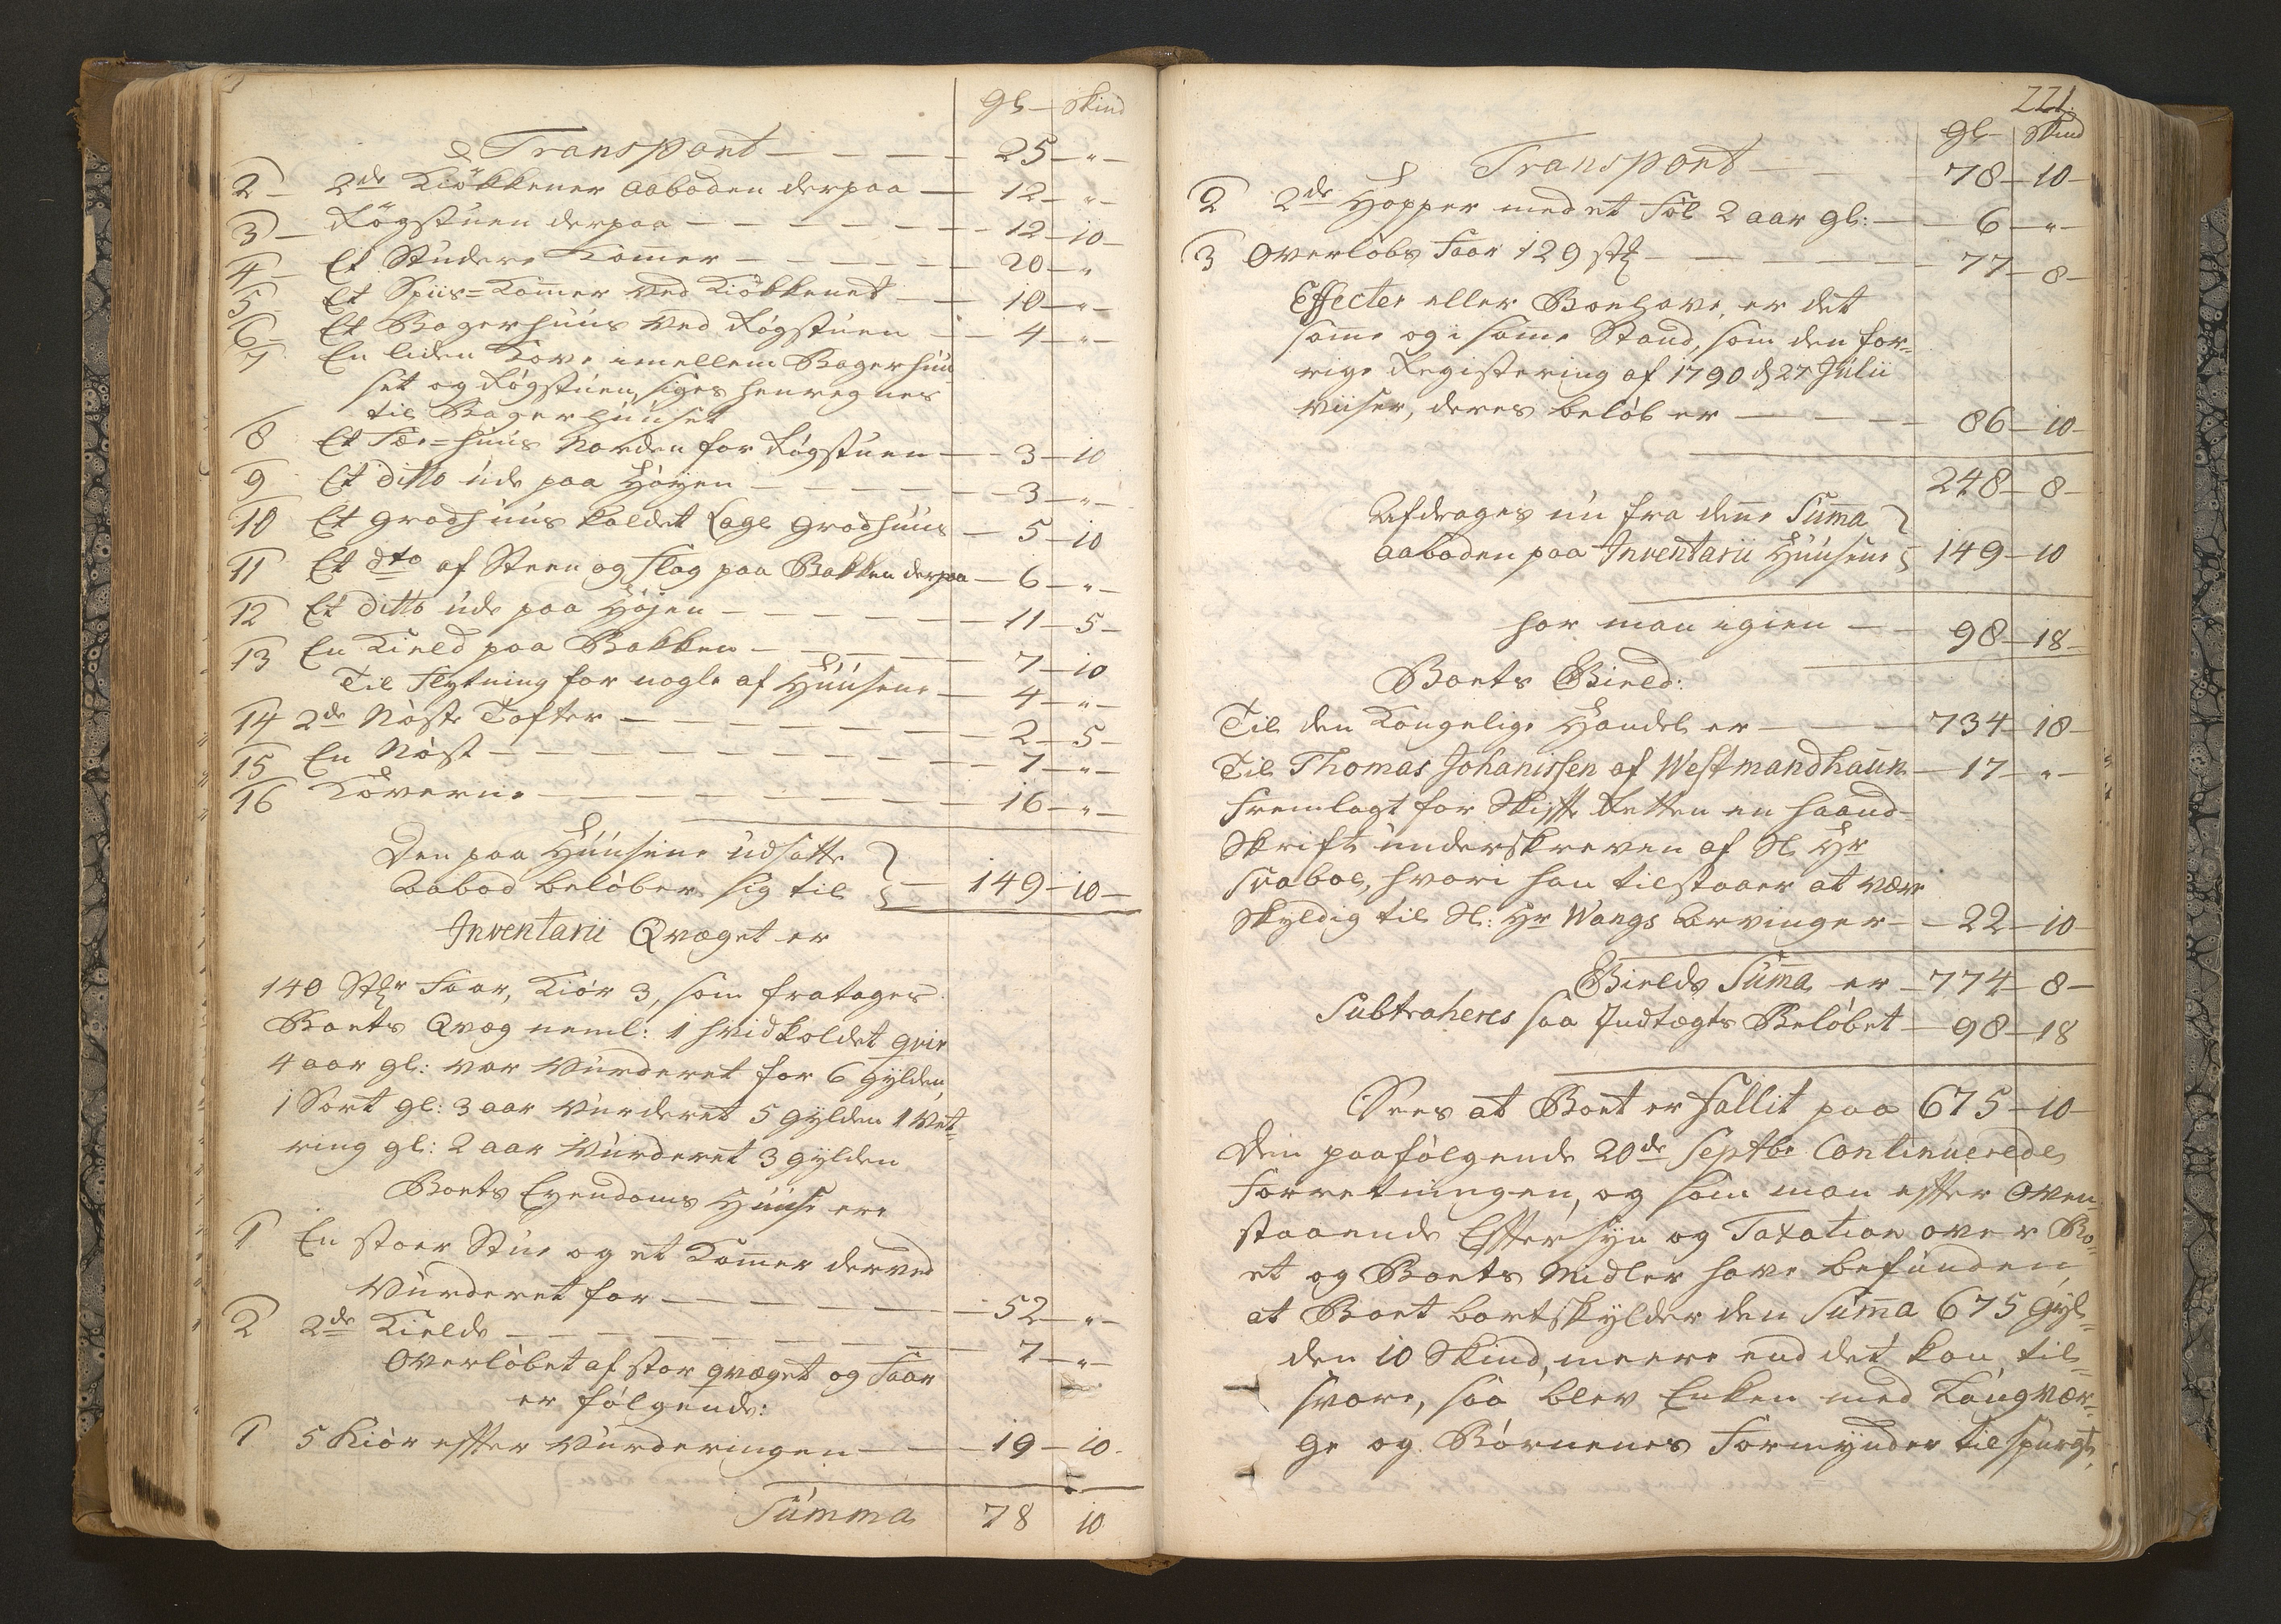 Gl — Skind
Transport — — — — 25 — " —
2 — 2de Kiökkener aaboden derpaa — 12 — " —
3 — Rögstuen derpaa — — — — — — 12 — 10 —
4 — Et Studere Kam̄er — — — — — 20 — "
5 — Et Spiis=Kam̄er ved Kiökkenet — — 10 — " —
6 — Et Bagerhuus ved Rögstuen — — 4 — " —
7 En liden Kove imellem Bagerhuu
set og Rögstuen, siges henregnes
til Bagerhuuset
8 Et Fæe=huus Norden for Rögstuen — 3 — 10
9 Et ditto ude paa Höyen — — — — — 3 — " —
10 Et Grodhuus kaldet Lage Grodhuus — 5 — 10
11 Et dto af Steen og Flag paa Bakken derpaa — 6 — " —
12 Et ditto ude paa Höjen — — — — — 11 — 5 —
13 En Kield paa Bakken — — — — — 7 — 10
Til Flytning for nogle af Huusene — 4 — " —
14 2de Nöste Tofter — — — — — — 2 — 5 —
15 En Nöst — — — — — — — — 1 — " —
16 Köverne — — — — — — — — 16 — " —
Den paa Huusene udsatte
Aabod belöber sig til — 149 — 10 —
Inventarii Qvæget er
140 Stkr Faar, Kiör 3, som fratages
Boets Qvæg neml: 1 hvidkoldet qvie
4 aar gl: var Vurderet for 6 Gylden,
1 Sort gl: 3 aar Vurderet 5 Gylden 1 Vet=
ring gl: 2 aar Vurderet 3 Gylden
Boets Eyendoms Huuse ere
1 En stoer Stue og et Kam̄er derved
Vurderet for — — — — — — 52 — " —
2 2de Kielde — — — — — — — — 7 — " —
Overlöbet af stor qvæget og Faar
er fölgende:
1 5 Kiör efter Vurderingen — — — 19 — 10 —
Summa 78 10
221.
Gl — Skind
Transport — — 78 — 10 —
2 2de Hopper med et Föl 2 aar gl: — 6 — " —
3 Overlöbs Faar 129 stk — — — — — 77 — 8 —
Effecter eller Boehave, er det
sam̄e og i sam̄e Stand, som den for=
rige Registering af 1790 d 27 Julii
viiser, deres belöb er — — — — 86 — 10 —
248 — 8 —
Afdrages nu fra den̄e Sum̄a
aaboden paa Inventarii Huusene 149 — 10
har man igien — — 98 — 18 —
Boets Gield:
Til den Kongelige Handel er — — — 734 — 18 —
Til Thomas Johanissen af Westmandhaun — 17 — " —
Fremlagt for Skifte Retten en haand=
Skrift underskreven af Sl. Hr
Svaboe, hvori han tilstaaer at være
Skyldig til Sl: Hr Wangs Arvinger — — 22 — 10 —
Gields Sum̄a er — 774 — 8 —
Subtraheres saa Indtægts Belöbet — 98 — 18
Sees at Boet er fallit paa 675 — 10 —
Den paafölgende 20de Septbr Continuerede
Forretningen, og som man efter oven=
staaende Eftersyn og Taxation over Bo=
et og Boets Midler have befunden
at Boet bortskylder den Sum̄a 675 Gyl=
den 10 Skind, meere end det kan til=
svare, saa blev Enken med Laugvær=
ge og Börnenes Formynder tilspurgt,